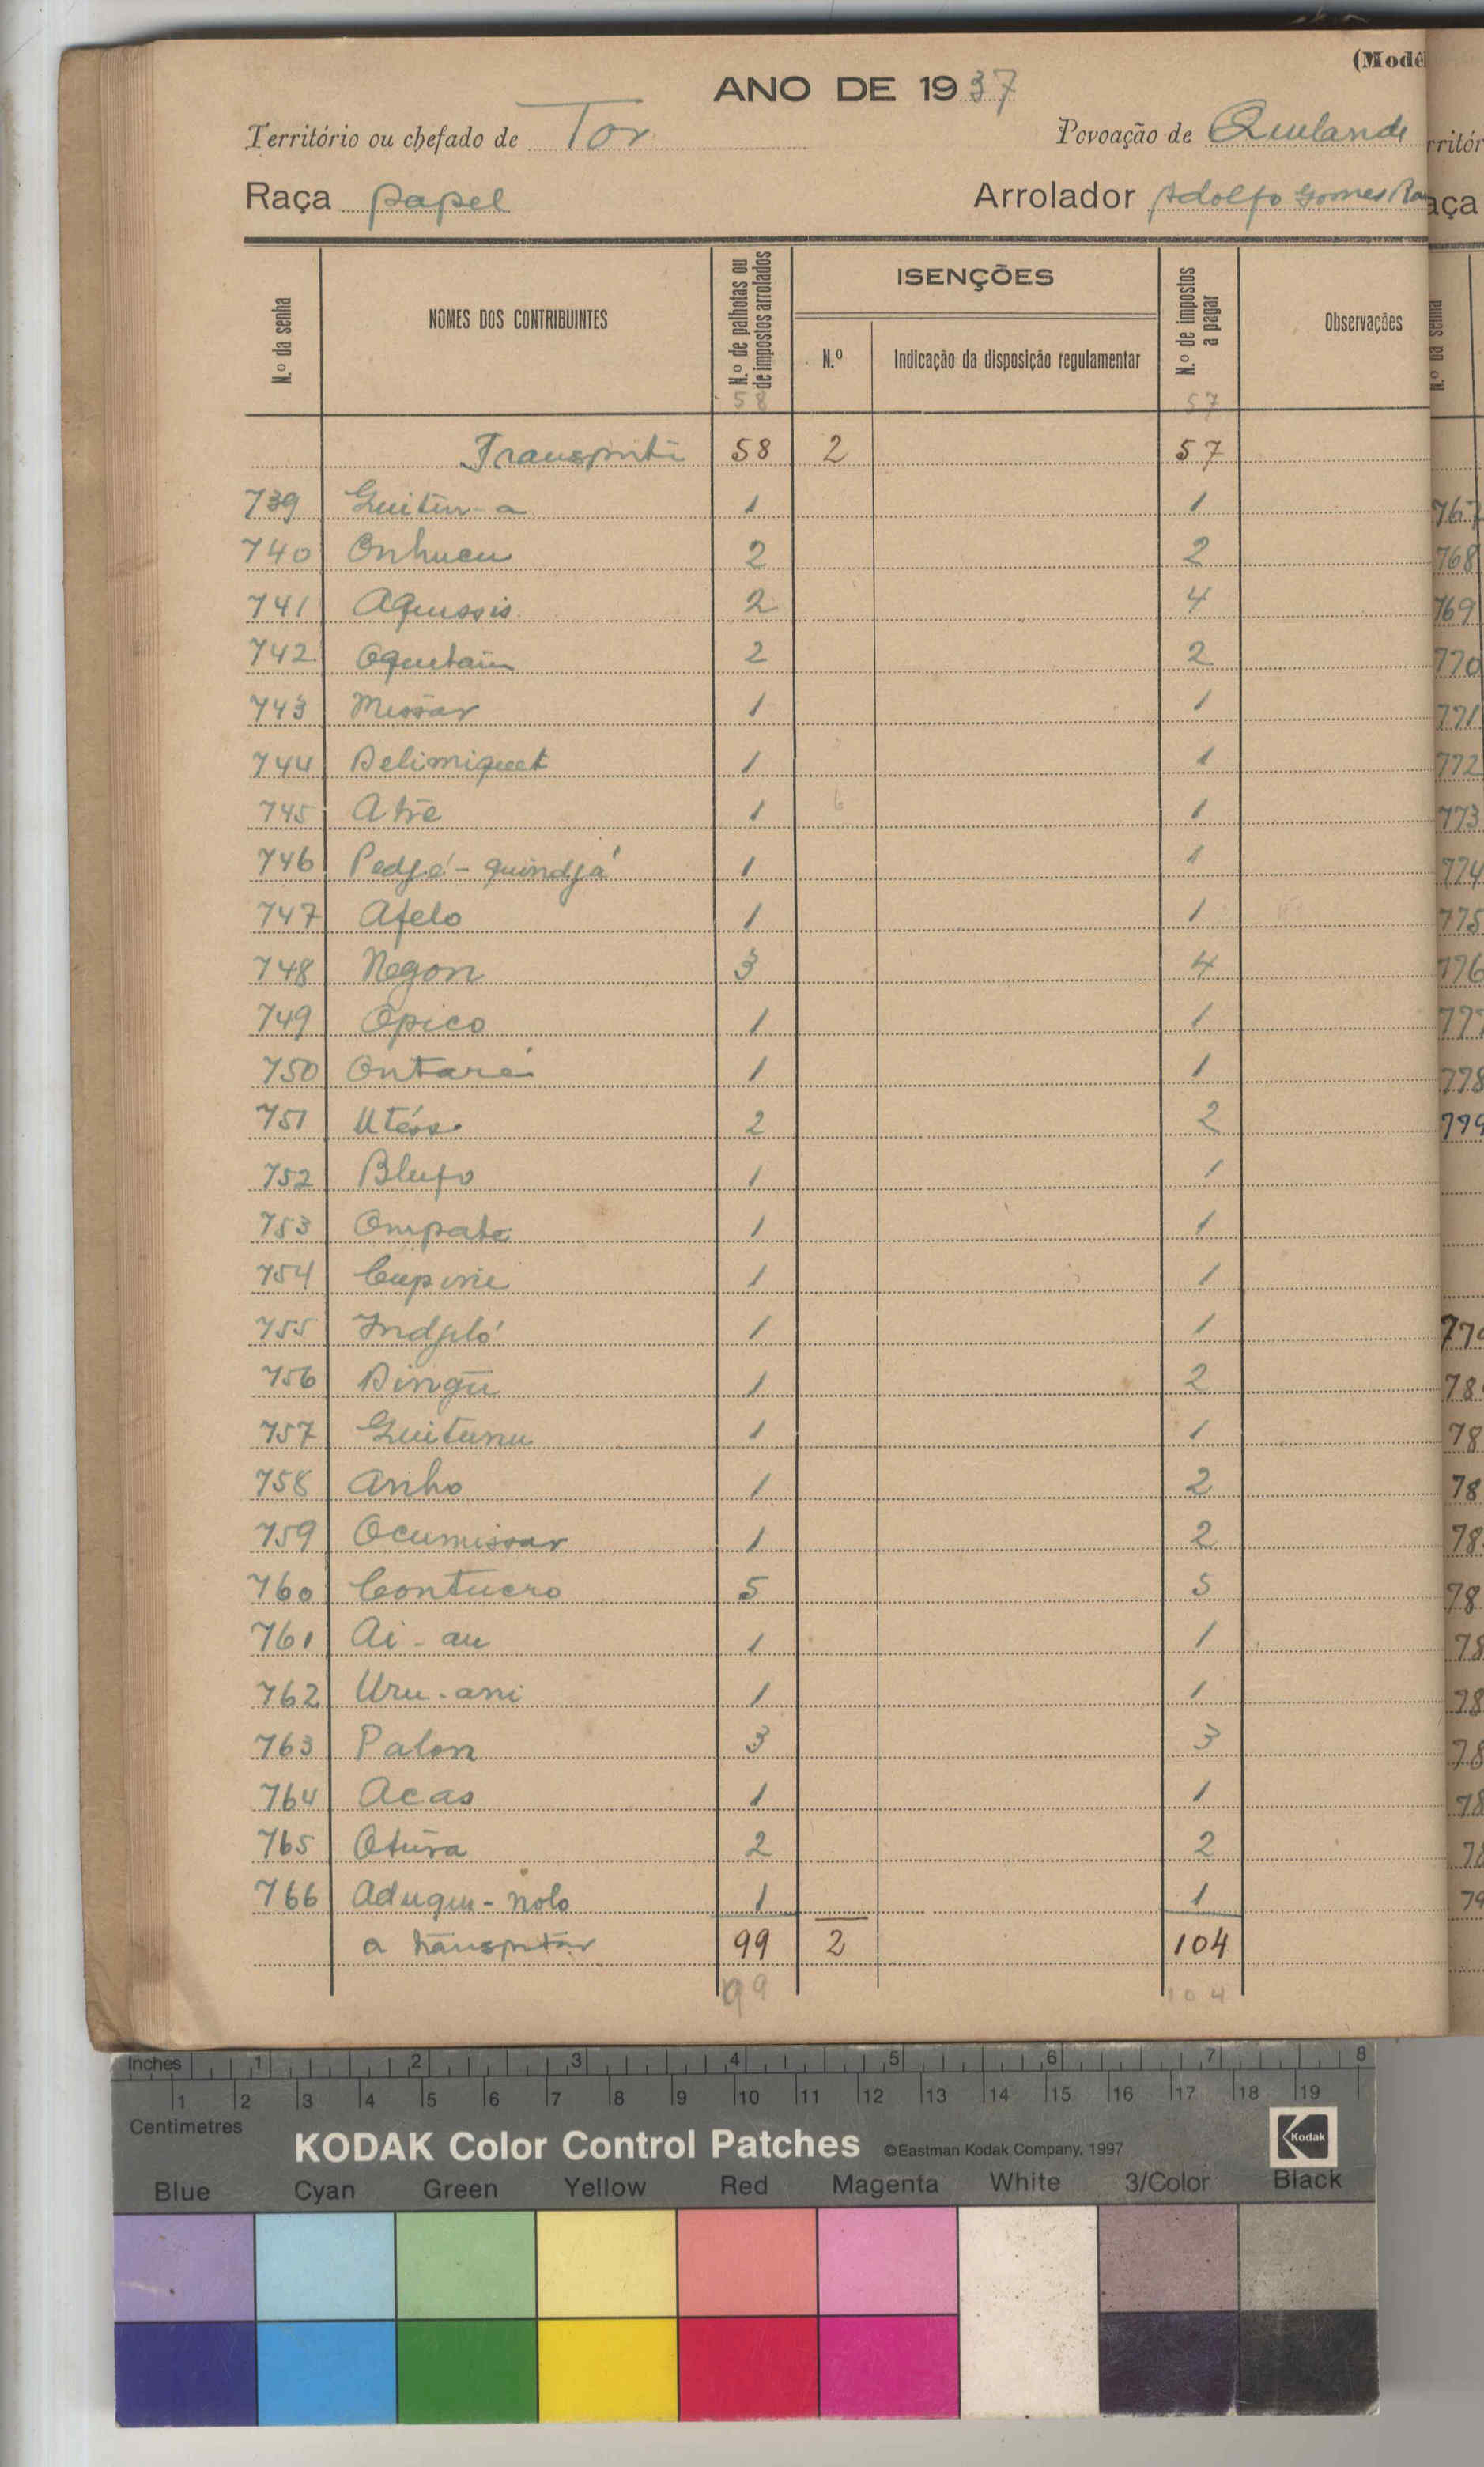 (Modê
ANO DE 1937
Território ou chefado de Tor
Povoação de Quilande
Raça papel
Arrolador Adolfo Gomes
N.º da senha
NOMES DOS CONTRIBUINTES
N.º de palhotas ou de impostos arrolados
ISENÇÕES
N.º
Indicação da disposição regulamentar
N.º de impostos a pagar
Observações
58 57
Transporte 58 2 57
739 Guitin-a 1 1
740 Onhucu 2 2
741 Aqussis 2 4
742 Oquetain 2 2
743 Missar 1 1
744 Belimiquet 1 1
745 Atré 1 6 1
746 Pedjé-quindjá 1 1
747 Afelo 1 1
748 Negon 3 4
749 Opico 1 1
750 Ontaré 1 1
751 2 2
752 Blufo 1 1
753 Ompate 1 1
754 Cupinie 1 1
755 Indjló 1 1
756 Bingu 1 2
757 Guitunu 1 1
758 Anho 1 2
759 Ocumissar 1 2
760 Contucro 5 5
761 Ai-au 1 1
762 Uru-ani 1 1
763 Palon 3 3
764 Acas 1 1
765 Otura 2 2
766 Aduqui-nolo 1 1
a transportar 99 2 104
99 104
rritór
aça
N.º da senha
767
768
769
770
771
772
773
774
775
776
777
778
799
779
78
78
78
78
78
78
78
78
78
78
79
Inches 1 2 3 4 5 6 7 8
1 2 3 4 5 6 7 8 9 10 11 12 13 14 15 16 17 18 19
Centimetres
KODAK Color Control Patches ©Eastman Kodak Company, 1997 Kodak
Blue Cyan Green Yellow Red Magenta White 3/Color Black